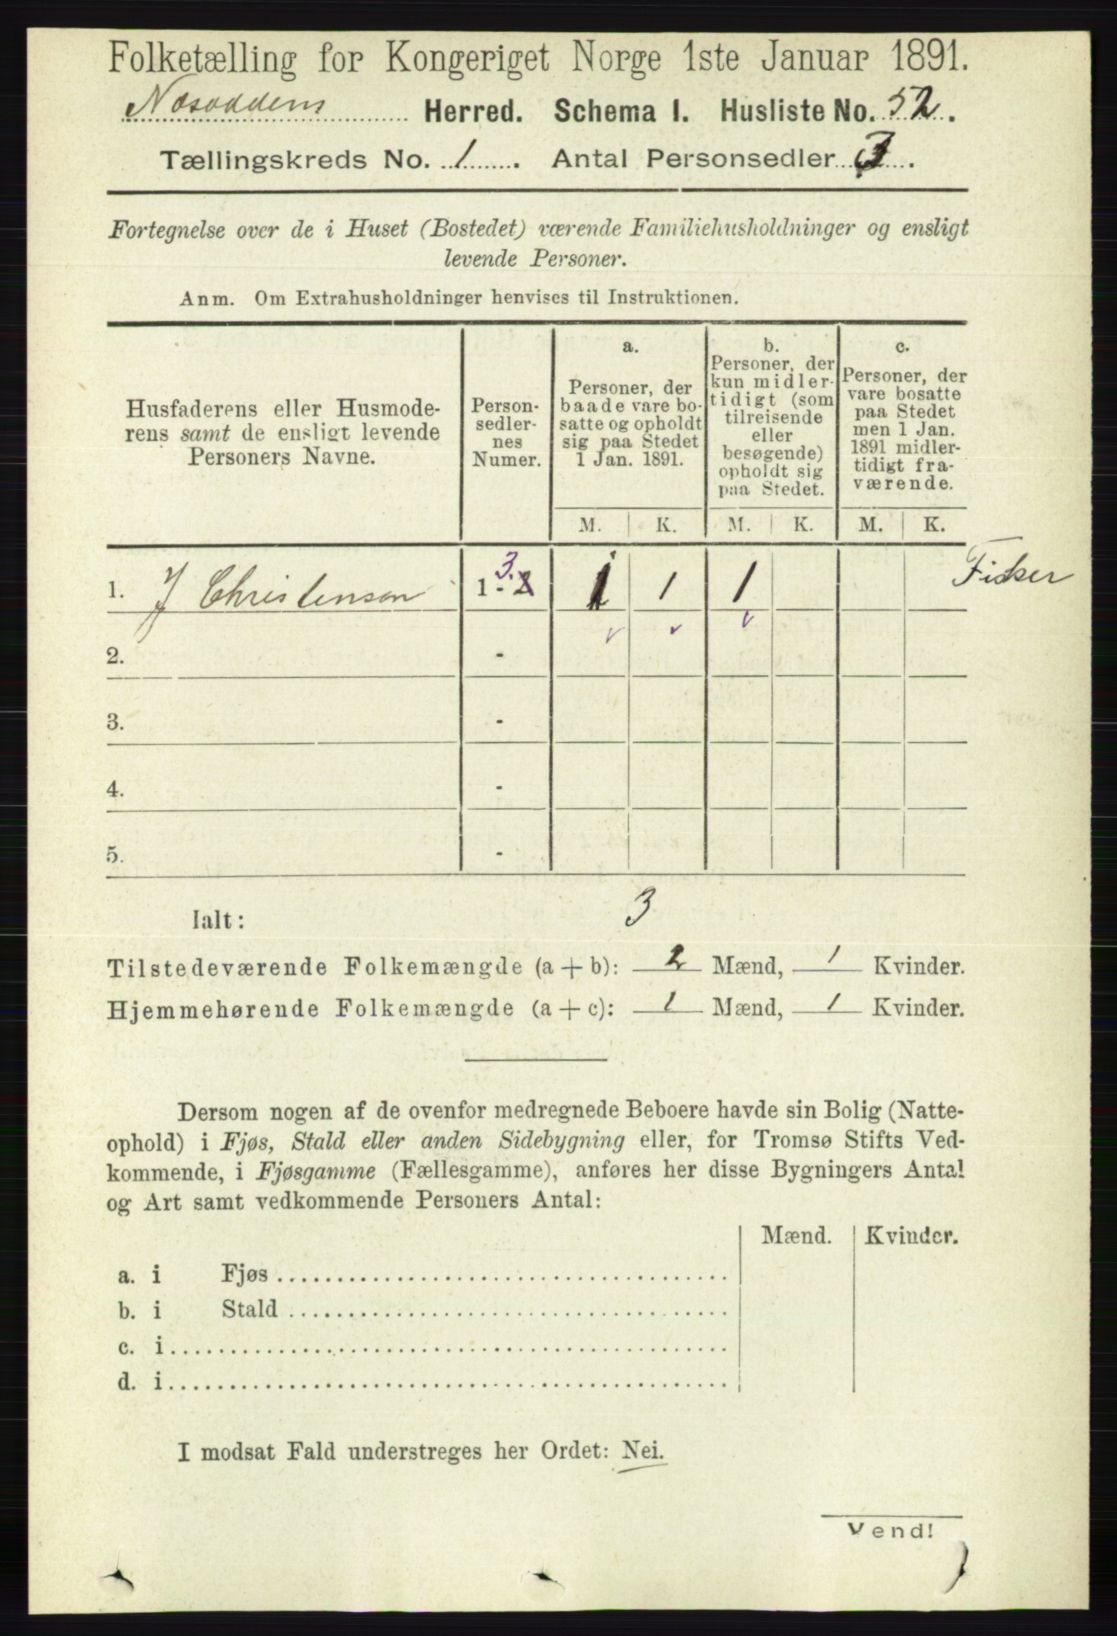 Folketælling for Kongeriget Norge 1ste Januar 1891.
Næsoddens Herred. Schema I. Husliste No. 52.
Tællingskreds No. 1. Antal Personsedler 3.
Fortegnelse over de i Huset (Bostedet) værende Familiehusholdninger og ensligt
levende Personer.
Anm. Om Extrahusholdninger henvises til Instruktionen.
Husfaderens eller Husmode-
rens samt de ensligt levende
Personers Navne.
Person-
sedler-
nes
Numer.
a.
Personer, der
baade vare bo-
satte og opholdt
sig paa Stedet
1 Jan. 1891.
b.
Personer, der
kun midler-
tidigt (som
tilreisende
eller
besøgende)
opholdt sig
paa Stedet.
c.
Personer, der
vare bosatte
paa Stedet
men 1 Jan.
1891 midler-
tidigt fra-
værende.
M. K. M. K. M. K.
1. J Christensen 1 - 2 3. 1 1 1 Fisker
2. -
3. -
4. -
5. -
Ialt: 3
Tilstedeværende Folkemængde (a + b): 2 Mænd, 1 Kvinder.
Hjemmehørende Folkemængde (a + c): 1 Mænd, 1 Kvinder.
Dersom nogen af de ovenfor medregnede Beboere havde sin Bolig (Natte-
ophold) i Fjøs, Stald eller anden Sidebygning eller, for Tromsø Stifts Ved-
kommende, i Fjøsgamme (Fællesgamme), anføres her disse Bygningers Antal
og Art samt vedkommende Personers Antal:
Mænd. Kvinder.
a. i Fjøs
b. i Stald
c. i
d. i
I modsat Fald understreges her Ordet: Nei.
Vend!